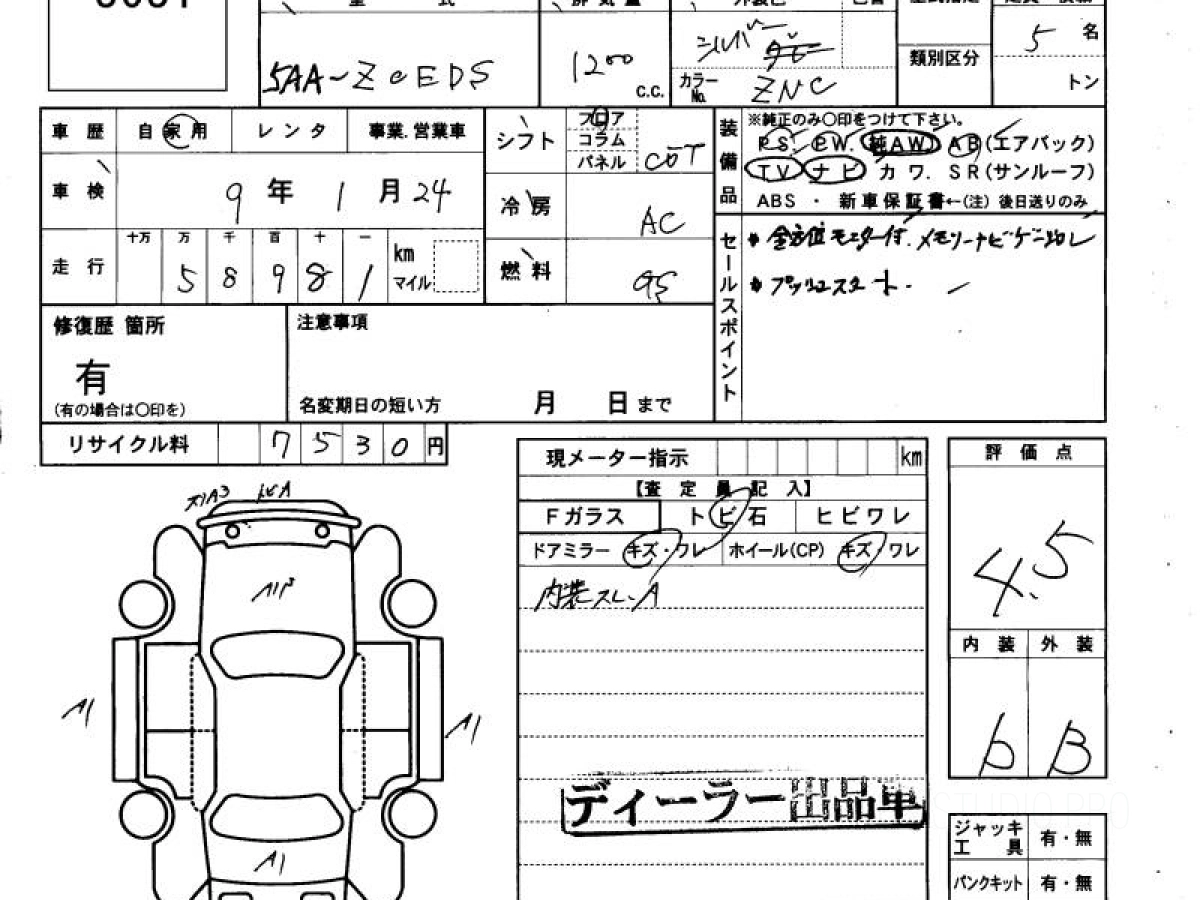 5AA-ZCEDS
1200
C.C.
シルバー
カラーNo. ZNC
類別区分
5 名
トン
車歴 自家用 レンタ 事業.営業車
シフト フロア コラム パネル CVT
装備品
※純正のみ〇印をつけて下さい。
PS. PW. 純AW. AB(エアバック)
TV ナビ カワ. SR(サンルーフ)
ABS ・ 新車保証書←(注) 後日送りのみ
車検 9年 1月 24
冷房 AC
走行 十万 万 千 百 十 一
5 8 9 8 1
km
マイル
燃料 GS
セールスポイント
全方位モニター付.メモリーナビゲーション
プッシュスタート.
修復歴 箇所
有
(有の場合は〇印を)
注意事項
名変期日の短い方 月 日 まで
リサイクル料 7 5 3 0 円
現メーター指示 km
【査定員記入】
Fガラス トビ石 ヒビワレ
ドアミラー キズ・ワレ ホイール(CP) キズ・ワレ
内装スレ.A
評価点
4.5
内装 外装
b B
A1
A1
A1
ディーラー出品車
STUDIO PRO
ジャッキ工具 有・無
パンクキット 有・無